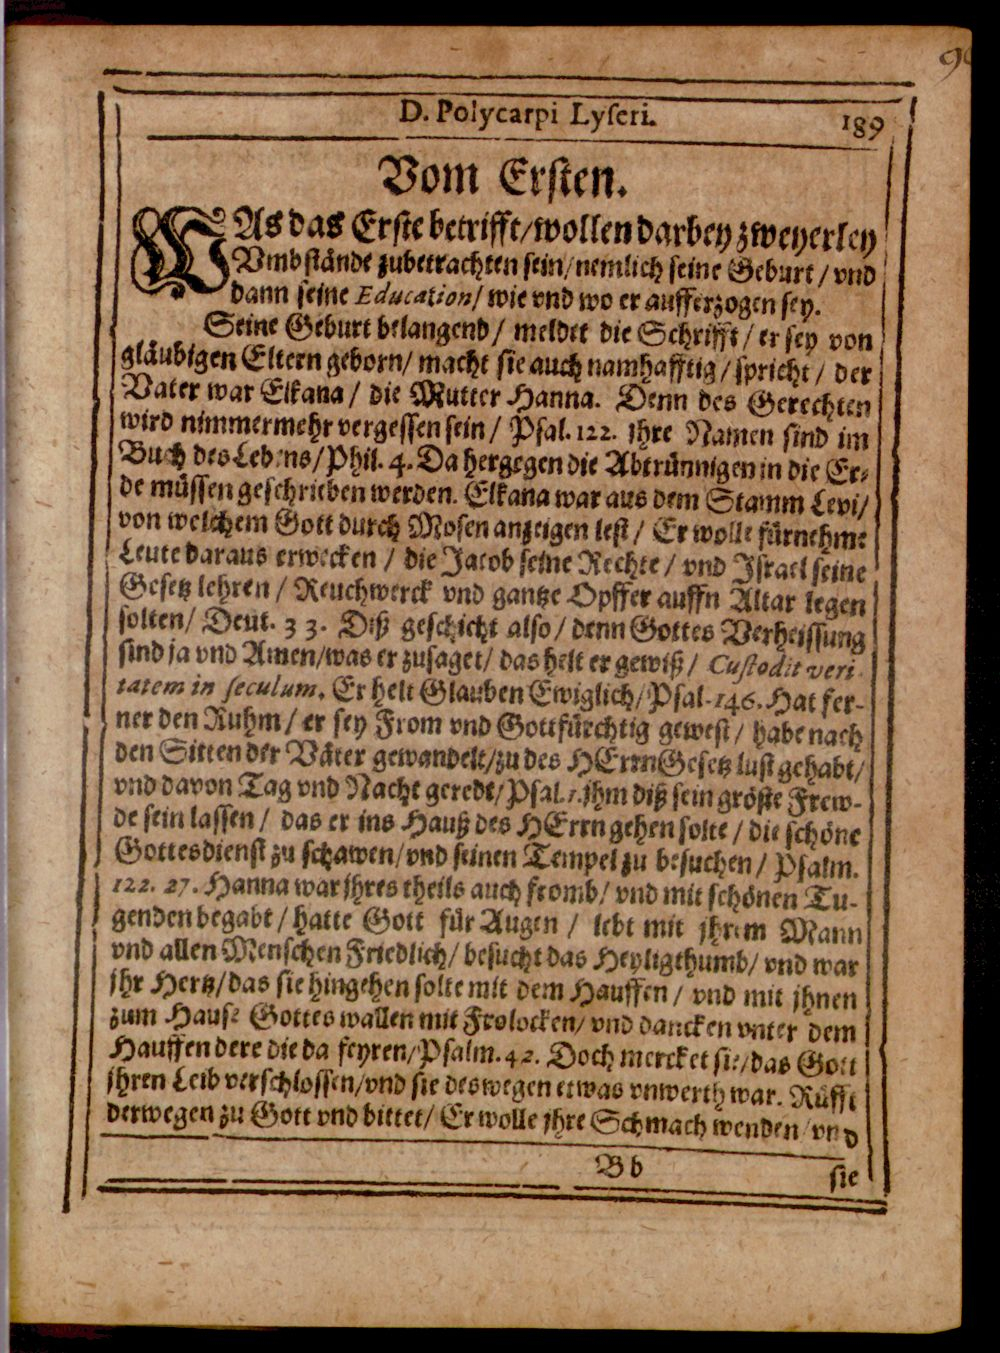 D. Polycarpi Lyseri.
189
Vom Ersten.
WAs das Erste betrifft/wollen darbey zweyerley
Vmbstände zubetrachten sein/nemlich seine Geburt/vnd
dann seine Education/ wie vnd wo er aufferzogen sey.
Seine Geburt belangend/ meldet die Schrifft/ er sey von
gläubigen Eltern geborn/ macht sie auch namhafftig/ spricht/ der
Vater war Elkana/ die Mutter Hanna. Denn des Gerechten
wird nimmermehr vergessen sein/ Psal. 122. jhre Namen sind im
Buch des Lebens/Phil. 4. Da hergegen die Abtrünnigen in die Er-
de müssen geschrieben werden. Elkana war aus dem Stamm Levi/
von welchem Gott durch Mosen anzeigen lest/ Er wolle fürnehme
Leute daraus erwecken/ die Jacob seine Rechte/ vnd Israel seine
Gesetz lehren/ Reuchwerck vnd gantze Opffer auffn Altar legen
solten/ Deut. 33. Diß geschicht also/ denn Gottes Verheissung
sind ja vnd Amen/was er zusaget/ das helt er gewiß/ Custodit veri-
tatem in seculum. Er helt Glauben Ewiglich/Psal. 146. Hat fer-
ner den Ruhm/ er sey From vnd Gottfürchtig gewest/ habe nach
den Sitten der Väter gewandelt/zu des HErrn Gesetz lust gehabt/
vnd davon Tag vnd Nacht geredt/Psal. 1. jhm diß sein gröste Frew-
de sein lassen/ das er ins Hauß des HErrn gehen solte/ die schöne
Gottesdienst zu schawen/vnd seinen Tempel zu besuchen/ Psalm.
122. 27. Hanna war jhres theils auch fromb/ vnd mit schönen Tu-
genden begabt/ hatte Gott für Augen/ lebt mit jhrem Mann
vnd allen Menschen Friedlich/ besucht das Heyligthumb/ vnd war
jhr Hertz/das sie hingehen solte mit dem Hauffen/ vnd mit jhnen
zum Hause Gottes wallen mit Frolocken/ vnd dancken vnter dem
Hauffen dere die da feyren/Psalm. 42. Doch mercket sie/das Gott
jhren Leib verschlossen/vnd sie deswegen etwas vnwerth war. Rüfft
derwegen zu Gott vnd bittet/ Er wolle jhre Schmach wenden/vnd
Bb
sie